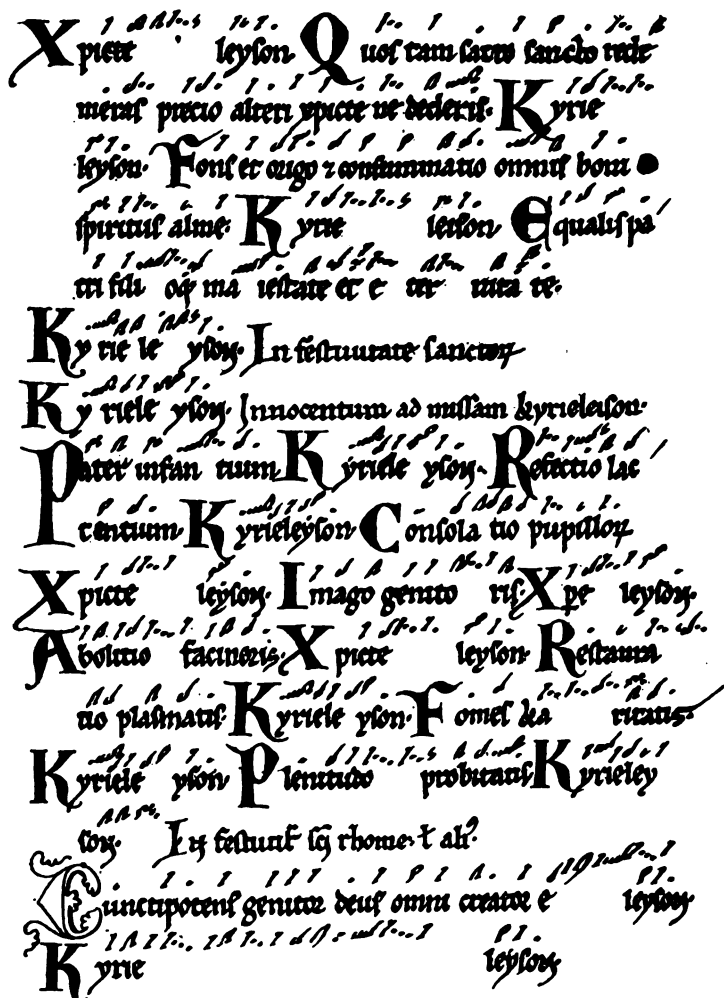 Xpicte leyson Quos tam sacro sancto rede
meras precio alteri xpicte ne dederis. Kyrie
leyson. Fons et origo ⁊ consummatio omnis boni
spiritus alme. Kyrie leison Equalis pa
tri fili oq; ma iestate et e ter nita te.
Ky rie le yson. In festiuitate sanctoꝝ
Ky riele yson. Innocentum ad missam kyrieleison.
Pater infan tium Kyriele yson. Refectio lac
tentium. Kyrieleyson Consola tio pupilloꝝ
Xpicte leyson. Imago genito ris. Xpe leyson.
Abolitio facinoris. Xpicte leyson Restaura
tio plasmatis. Kyriele yson. Fomes ka ritatis.
Kyriele yson Plenitudo probitatis. Kyrieley
son. In
Cunctipotens genitor deus omni creator e leyson
Kyrie leyson